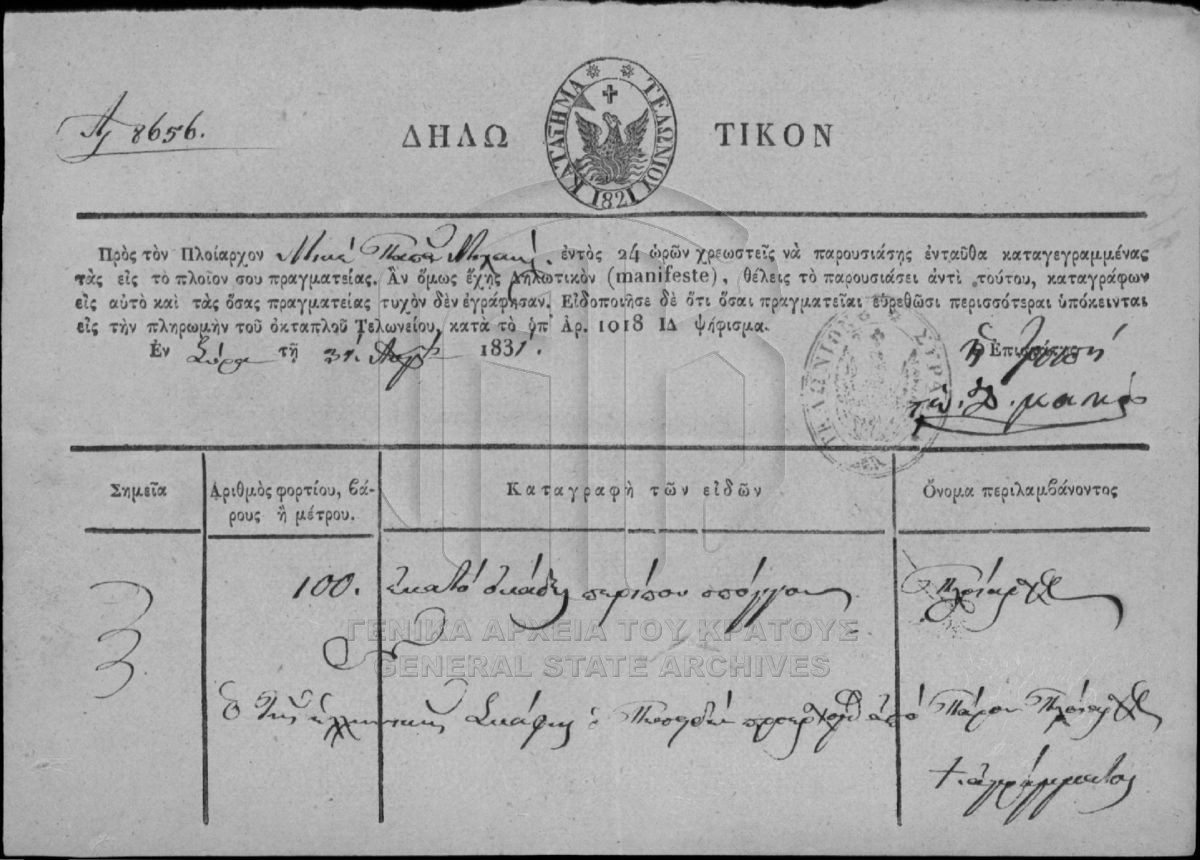 8656.
ΔΗΛΩ
ΤΙΚΟΝ
ΚΑΤΑΣΤΗΜΑ ΤΕΛΩΝΙΟΥ
1821
Πρὸς τὸν Πλοίαρχον ἐντὸς 24 ὡρῶν χρεωστεῖς νὰ παρουσιάσης ἐνταῦθα καταγεγραμμένας
τὰς εἰς τὸ πλοῖον σου πραγματείας. Ἂν ὅμως ἔχης δηλωτικὸν (manifeste), θέλεις τὸ παρουσιάσει ἀντὶ τούτου, καταγράφων
εἰς αὐτὸ καὶ τὰς ὅσας πραγματείας τυχὸν δὲν ἐγράφησαν. Εἰδοποιήσε δὲ ὅτι ὅσαι πραγματεῖαι εὑρεθῶσι περισσότεραι ὑπόκεινται
εἰς τὴν πληρωμὴν τοῦ ὀκταπλοῦ Τελωνείου, κατὰ τὸ ὑπ' Ἀρ. 1018 ΙΔ ψήφισμα.
Ἐν Σύρᾳ τῇ 31 1831.
ΤΕΛΩΝΙΟΝ ΣΥΡΑΣ
Σημεῖα
Ἀριθμὸς φορτίου, βά-
ρους ἢ μέτρου.
Καταγραφὴ τῶν εἰδῶν
Ὄνομα περιλαμβάνοντος
100. ἑκατὸ ὀκάδες περίπου σπόγγοι
Πλοίαρχος
ΓΕΝΙΚΑ ΑΡΧΕΙΑ ΤΟΥ ΚΡΑΤΟΥΣ
GENERAL STATE ARCHIVES
ὁ τῆς ἑλληνικῆς ἀπὸ Πάρον Πλοίαρχος
ἀγράμματος